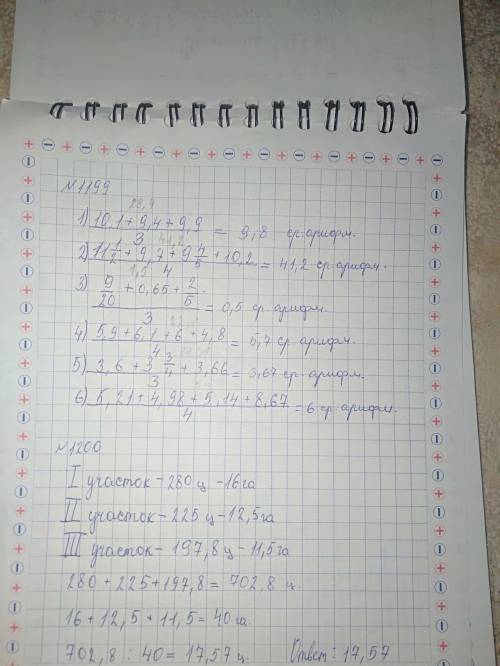 №1199
29,4
1) 10,1 + 9,4 + 9,9 / 3 = 9,8 ср. арифм.
41,2
2) 11 1/2 + 9,7 + 9 4/5 + 10,2 / 4 = 41,2 ср. арифм.
1,5
3) 9/20 + 0,65 + 2/5 / 3 = 0,5 ср. арифм.
4) 5,9 + 6,1 + 6 + 4,8 / 4 = 5,7 ср. арифм.
5) 3,6 + 3 3/4 + 3,66 / 3 = 3,67 ср. арифм.
6) 5,21 + 4,98 + 5,14 + 8,67 / 4 = 6 ср. арифм.
№1200
I участок - 280 ц - 16 га
II участок - 225 ц - 12,5 га
III участок - 197,8 ц - 11,5 га
280 + 225 + 197,8 = 702,8 ц.
16 + 12,5 + 11,5 = 40 га.
702,8 : 40 = 17,57 ц. Ответ: 17,57